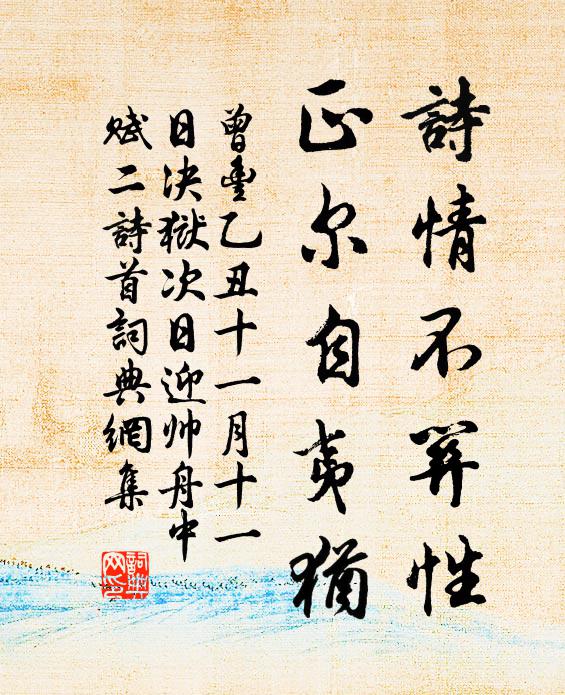 詩情不關性
正尔自夷猶
曾豊乙丑十一月十一
日决獄次日迎帅舟中
賦二詩首詞典網集
詞典